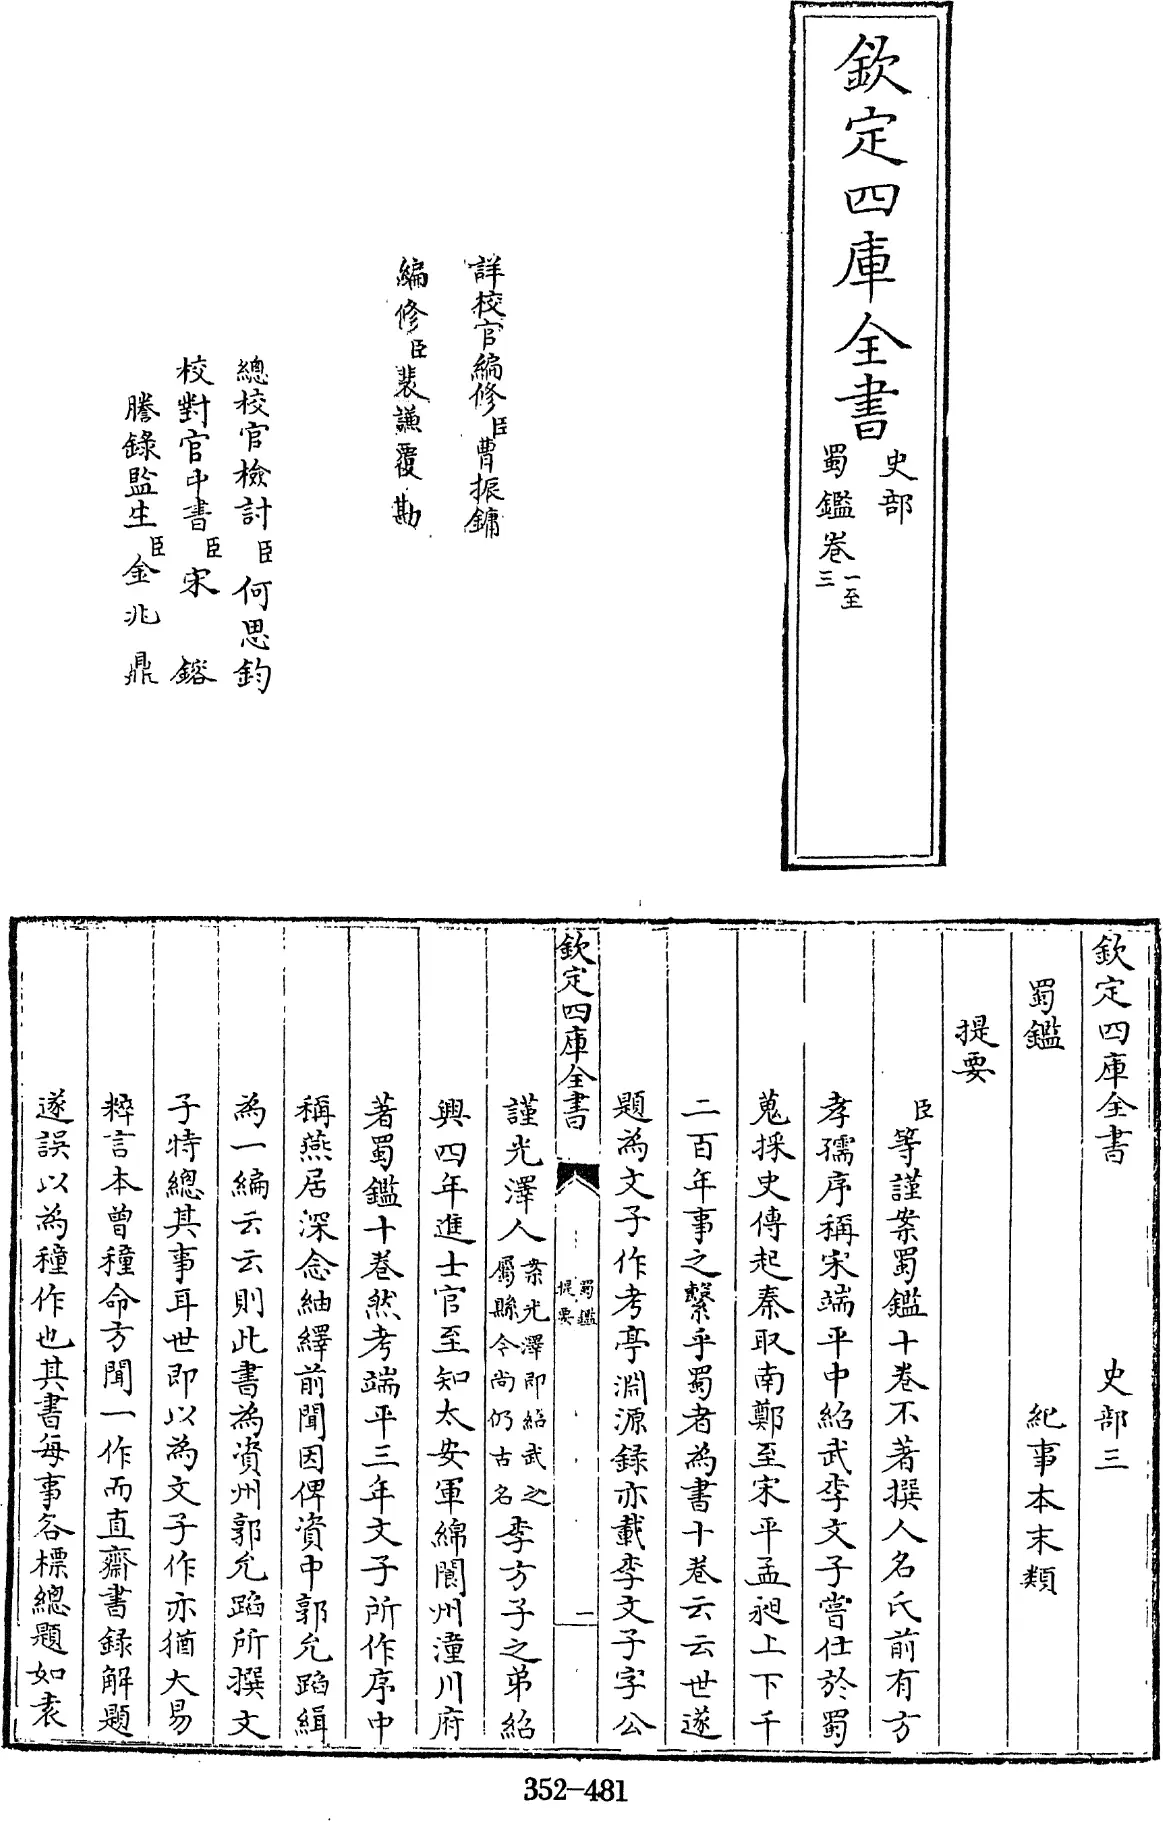 欽定四庫全書
史部
蜀鑑卷一至三
詳校官編修臣曹振鏞
編修臣裴謙覆勘
總校官檢討臣何思鈞
校對官中書臣宋鎔
謄錄監生臣金兆鼎
欽定四庫全書 史部三
蜀鑑 紀事本末類
提要
臣等謹案蜀鑑十卷不著撰人名氏前有方
孝孺序稱宋端平中紹武李文子嘗仕於蜀
蒐採史傳起秦取南鄭至宋平孟昶上下千
二百年事之繫乎蜀者為書十卷云云世遂
題為文子作考亭淵源録亦載李文子字公
欽定四庫全書 蜀鑑提要 二
謹光澤人案光澤即紹武之屬縣令尚仍古名李方子之弟紹
興四年進士官至知太安軍綿閬州潼川府
著蜀鑑十卷然考端平三年文子所作序中
稱燕居深念紬繹前聞因俾資中郭允蹈緝
為一編云云則此書為資州郭允蹈所撰文
子特總其事耳世即以為文子作亦猶大易
粹言本曾穜命方聞一作而直齋書録解題
遂誤以為穜作也其書每事各標總題如袁
352-481